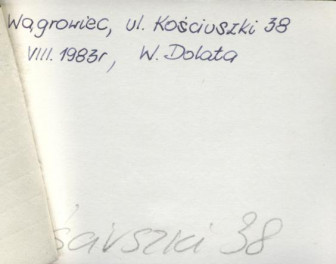 Wągrowiec, ul. Kościuszki 38
VIII. 1983r, W. Dolata
ściuszki 38